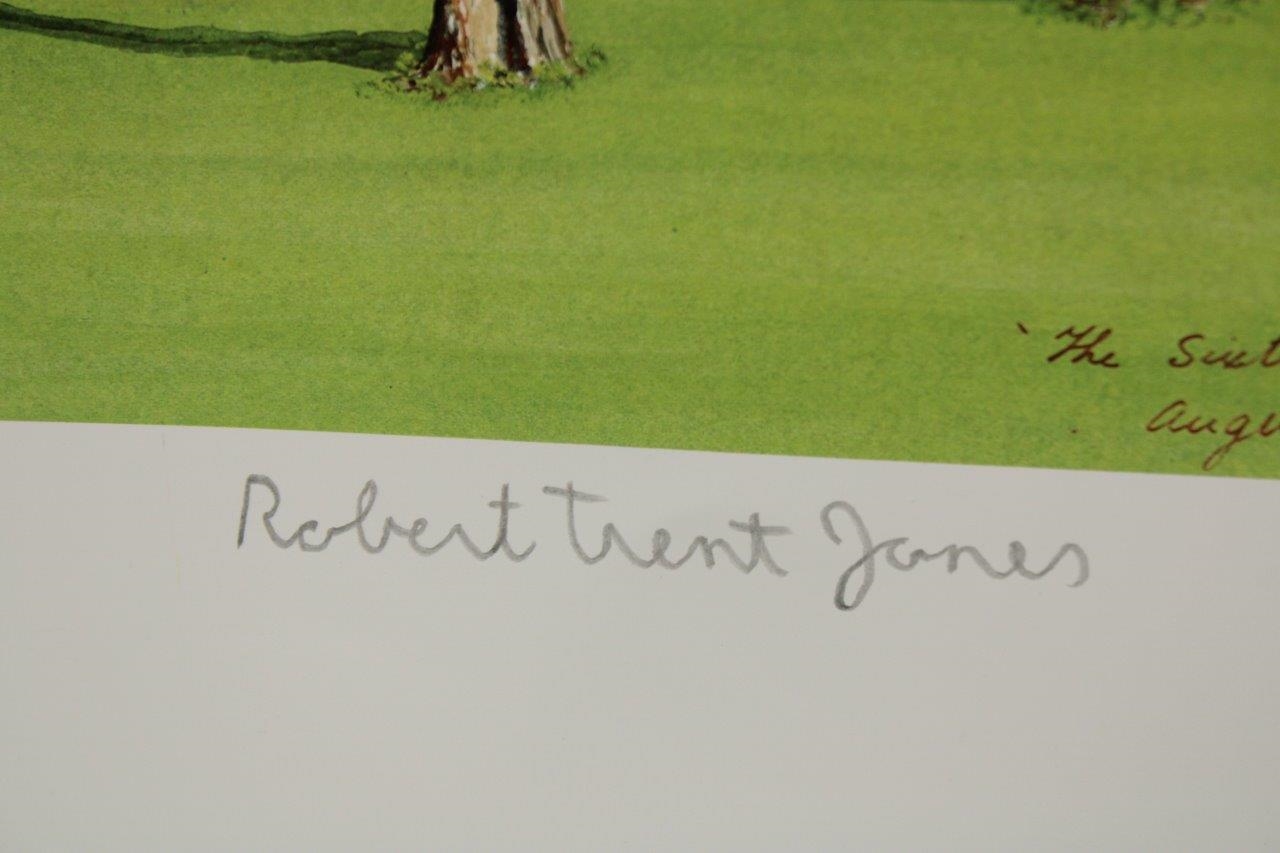 ‵The Sixt
Augu
Robert Trent Jones